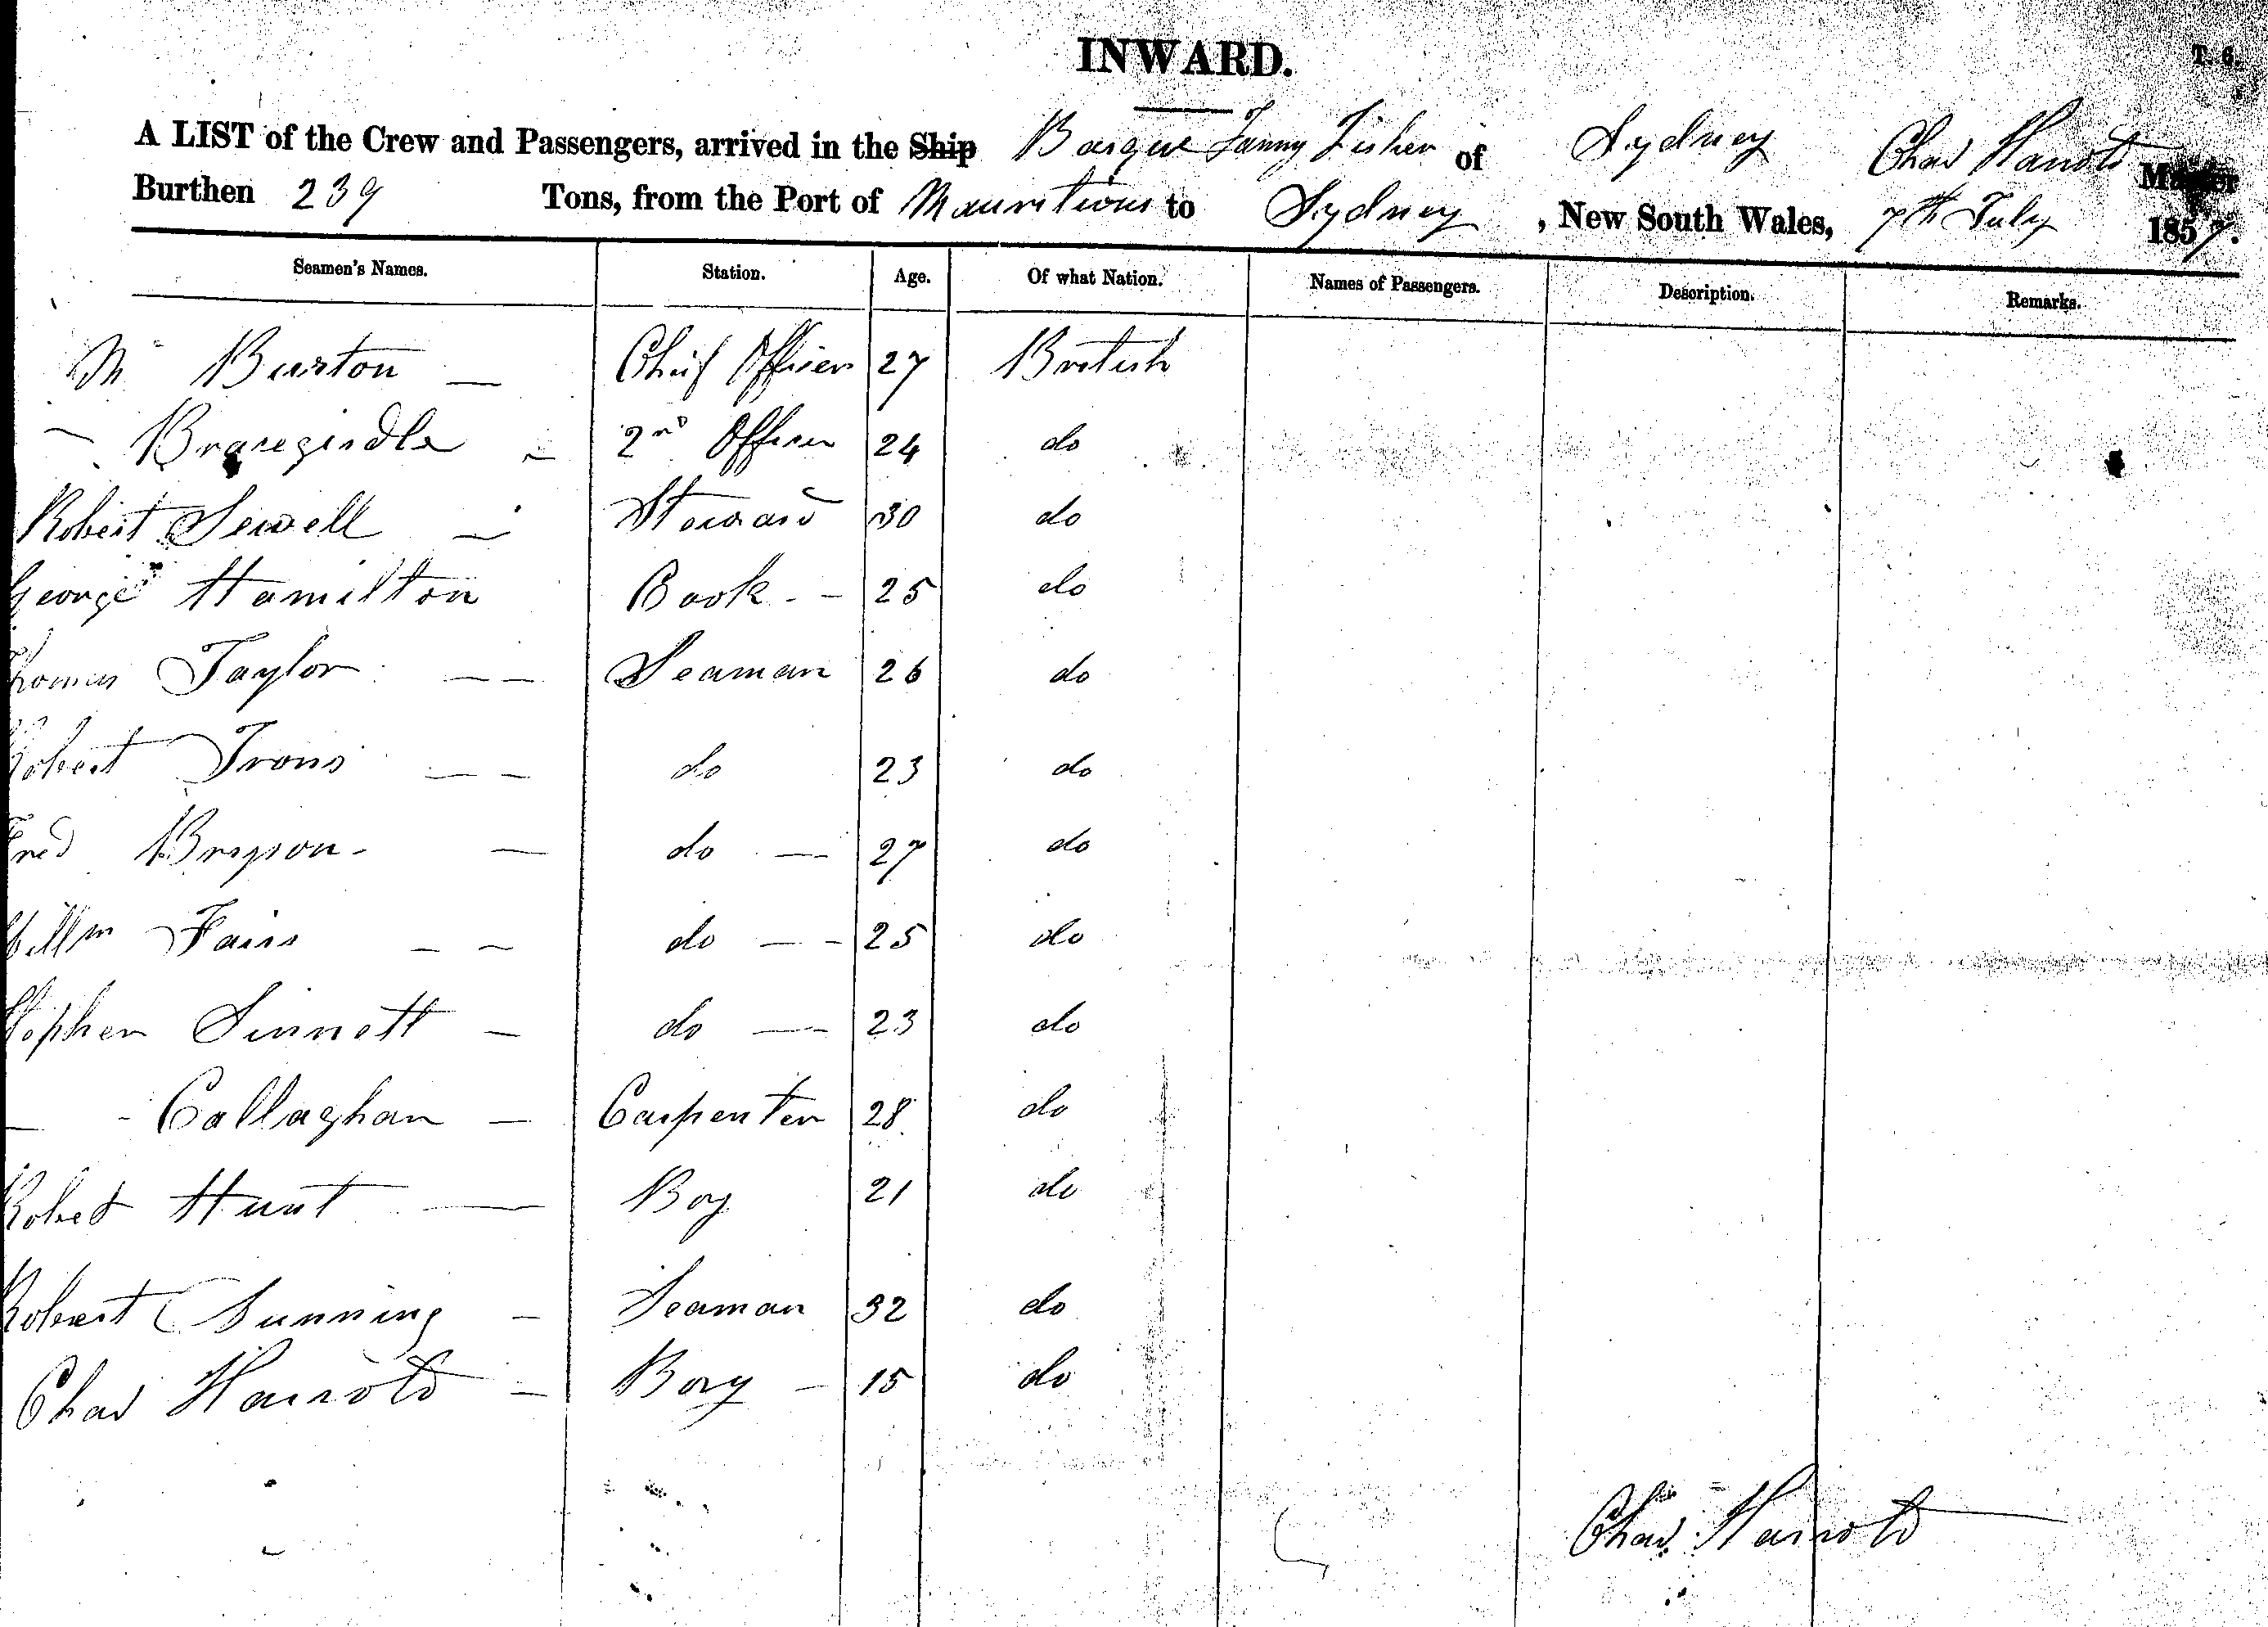 INWARD.
T. 6.
A LIST of the Crew and Passengers, arrived in the Ship Barque Fanny Fisher of Sydney Chas Harrold Master
Burthen 239 Tons, from the Port of Mauritious to Sydney , New South Wales, 7th July 1857.
Seamen's Names. Station. Age. Of what Nation. Names of Passengers. Description. Remarks.
Mr Burton — Chief Officer 27 British
— Bracegirdle — 2nd Officer 24 do
Robert Sewell — Steward 30 do
George Hamilton Cook - - 25 do
Thomas Taylor — — Seaman 26 do
Robert Irons — — do 23 do
Fred Bryson - — do — 27 do
Willm Fairs — — do — - 25 do
Stephen Sinnett — do — 23 do
— - Callaghan — Carpenter 28 do
Robert Hunt — Boy 21 do
Robert Gunning — Seaman 32 do
Chas Harrold — Boy — 15 do
Chas Harrold